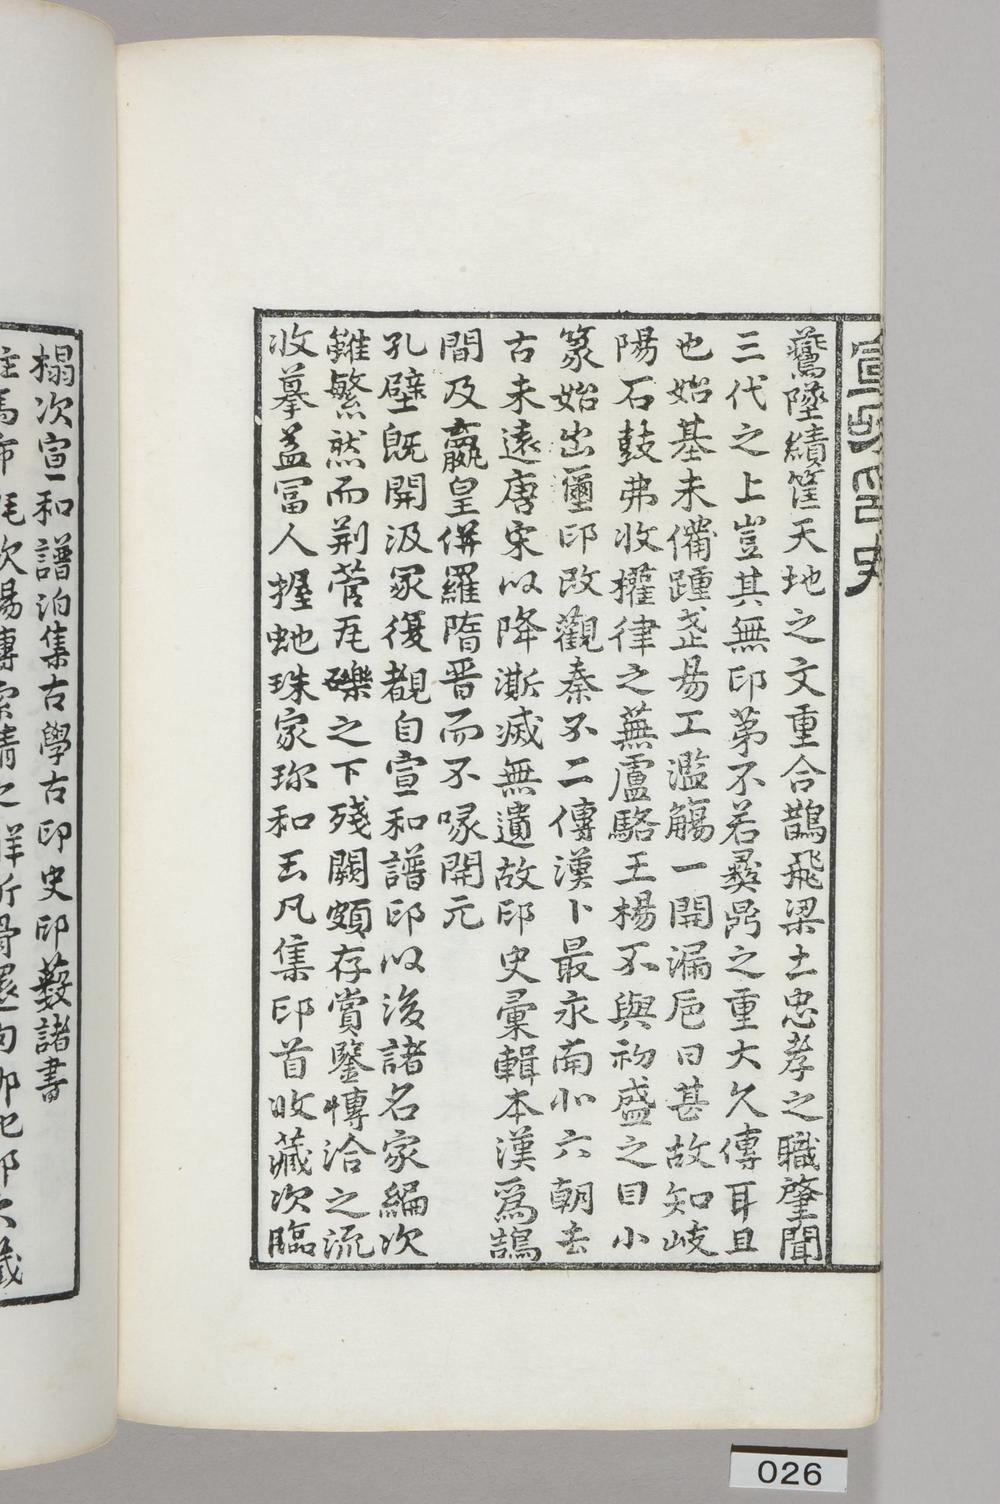 鷟墜績筐天地之文重合鵲飛梁土忠孝之職肇聞
三代之上豈其無印第不若彝鼎之重大久傳耳且
也始基未備踵走易工濫觴一開漏巵日甚故知岐
陽石鼓弗收擢律之蕪盧駱王楊不與初盛之目小
篆始出璽印改觀秦不二傳漢卜最永南北六朝去
古未遠唐宋以降澌滅無遺故印史彙輯本漢爲鵠
間及嬴皇併羅隋晋而不喙開元
孔壁既開汲冢復覩自宣和譜印以後諸名家編次
雖繁然而荆菅瓦礫之下殘闕頗存賞鑒慱洽之流
收摹益冨人握虵珠家珍和玉凡集印首收藏次臨
榻次宣和譜洎集古學古印史印藪諸書